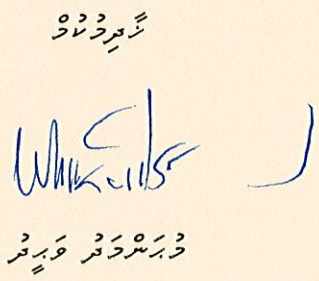 ޚާދިމުކުމް
މުޙަންމަދު ވަޙީދު